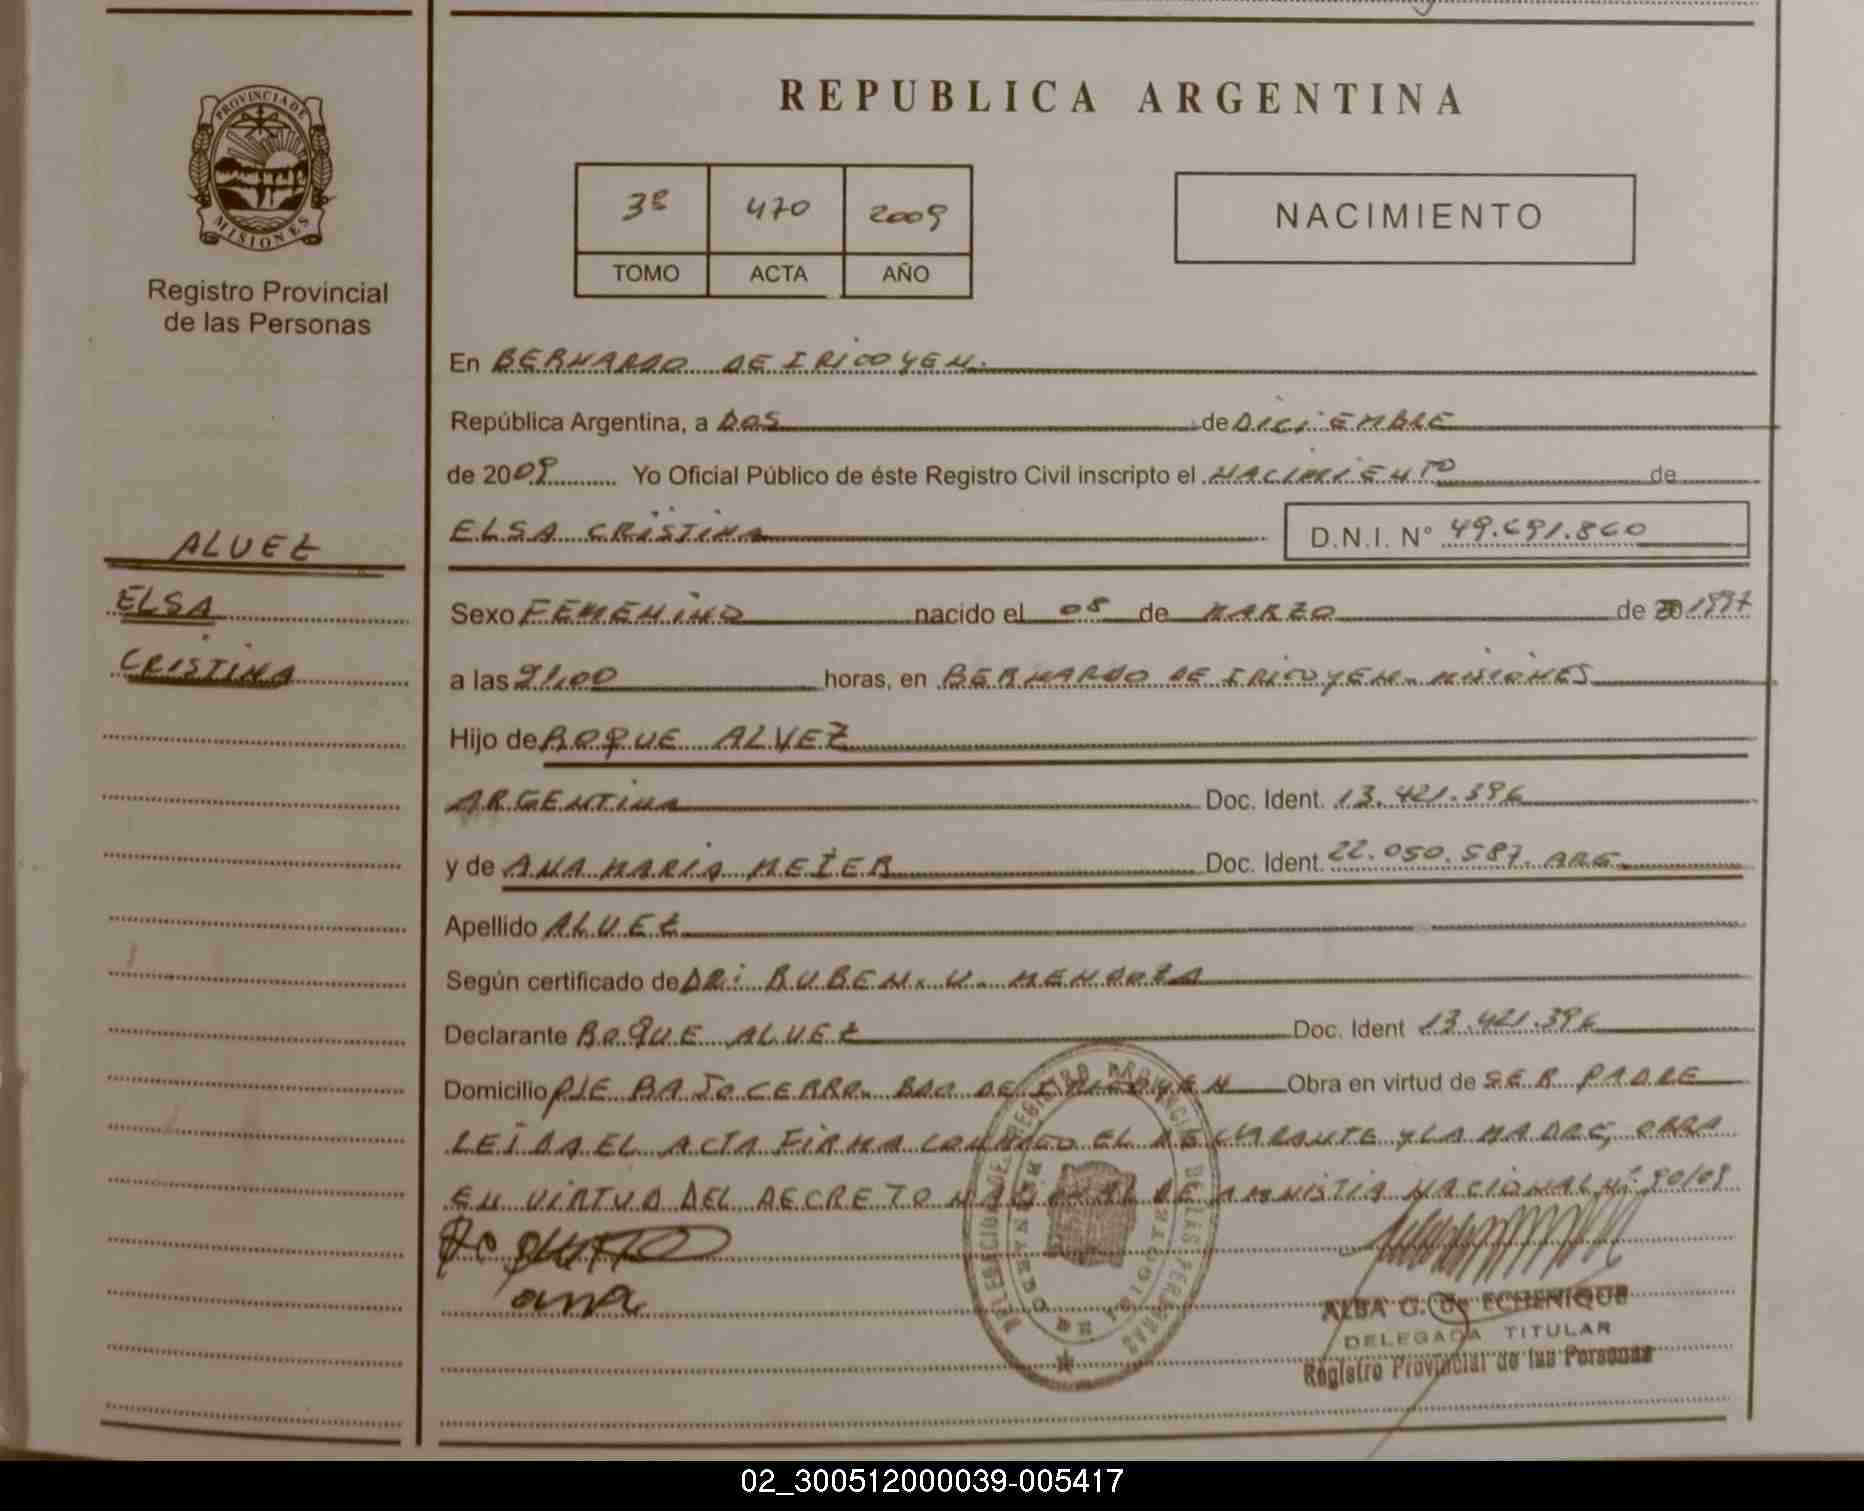 REPUBLICA ARGENTINA
PROVINCIA DE
MISIONES
Registro Provincial
de las Personas
3º 470 2009
TOMO ACTA AÑO
NACIMIENTO
En BERNARDO DE IRIGOYEN.
República Argentina, a DOS de DICIEMBRE
de 2009 Yo Oficial Público de éste Registro Civil inscripto el NACIMIENTO de
ELSA CRISTINA D.N.I. Nº 49.691.860
ALVEZ
ELSA
CRISTINA
Sexo FEMENINO nacido el 08 de MARZO de 20 1997
a las 21,00 horas, en BERNARDO DE IRIGOYEN. MISIONES
Hijo de ROQUE ALVEZ
ARGENTINA Doc. Ident. 13.421.396
y de ANA MARIA MEIER Doc. Ident. 22.050.587. ARG.
Apellido ALVEZ
Según certificado de DR: RUBEN. U. MENDOZA
Declarante ROQUE ALVEZ Doc. Ident 13.421.396
Domicilio PJE BAJO CERRO. BDO DE IRIGOYEN Obra en virtud de SER PADRE
LEIDA EL ACTA FIRMA CONMIGO EL DECLARANTE Y LA MADRE, OBRA
EN VIRTUD DEL DECRETO NACIONAL DE AMNISTIA NACIONAL Nº 90/09
ana
DELEGACION DEL REGISTRO PROVINCIAL DE LAS PERSONAS
BERNARDO DE IRIGOYEN
ALBA G. de ECHENIQUE
DELEGADA TITULAR
Registro Provincial de las Personas
02_300512000039-005417